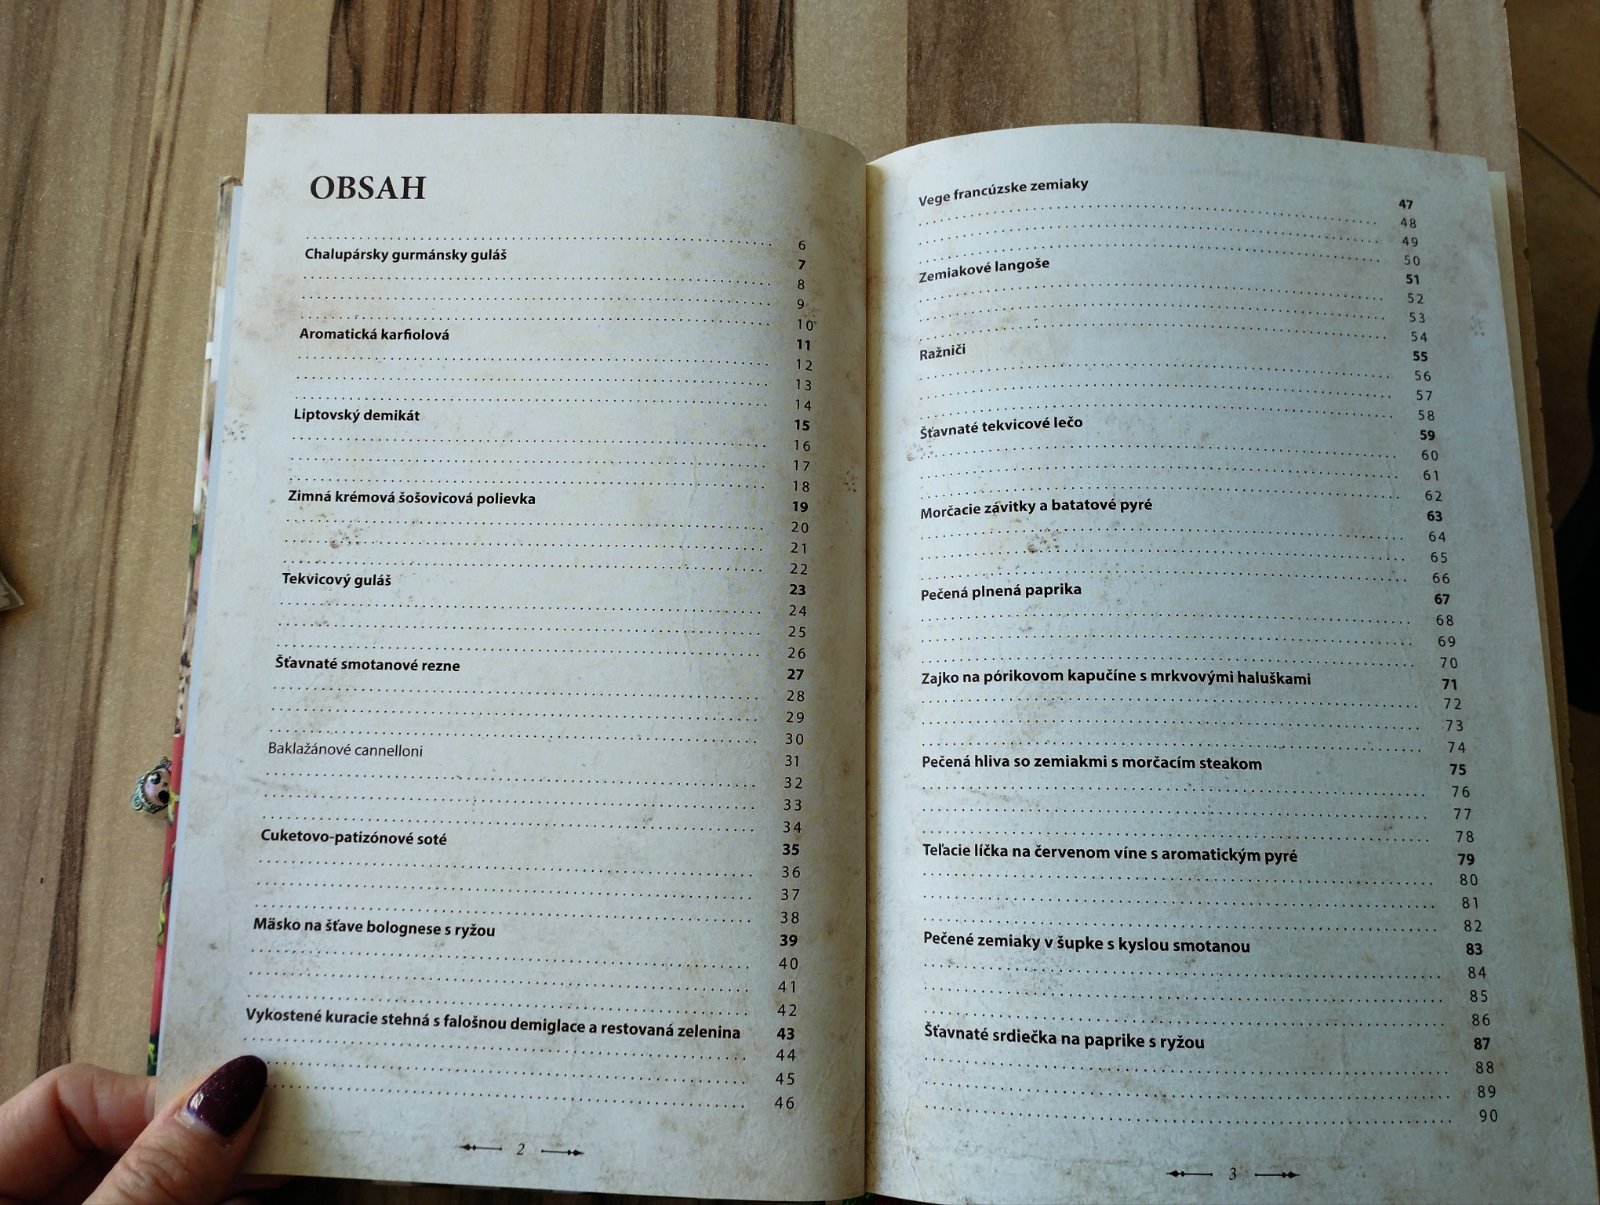 OBSAH
6
Chalupársky gurmánsky guláš 7
8
9
10
Aromatická karfiolová 11
12
13
14
Liptovský demikát 15
16
17
18
Zimná krémová šošovicová polievka 19
20
21
22
Tekvicový guláš 23
24
25
26
Šťavnaté smotanové rezne 27
28
29
30
Baklažánové cannelloni 31
32
33
34
Cuketovo-patizónové soté 35
36
37
38
Mäsko na šťave bolognese s ryžou 39
40
41
42
Vykostené kuracie stehná s falošnou demiglace a restovaná zelenina 43
44
45
46
2
Vege francúzske zemiaky 47
48
49
50
Zemiakové langoše 51
52
53
54
Ražniči 55
56
57
58
Šťavnaté tekvicové lečo 59
60
61
62
Morčacie závitky a batatové pyré 63
64
65
66
Pečená plnená paprika 67
68
69
70
Zajko na pórikovom kapučíne s mrkvovými haluškami 71
72
73
74
Pečená hliva so zemiakmi s morčacím steakom 75
76
77
78
Teľacie líčka na červenom víne s aromatickým pyré 79
80
81
82
Pečené zemiaky v šupke s kyslou smotanou 83
84
85
86
Šťavnaté srdiečka na paprike s ryžou 87
88
89
90
3